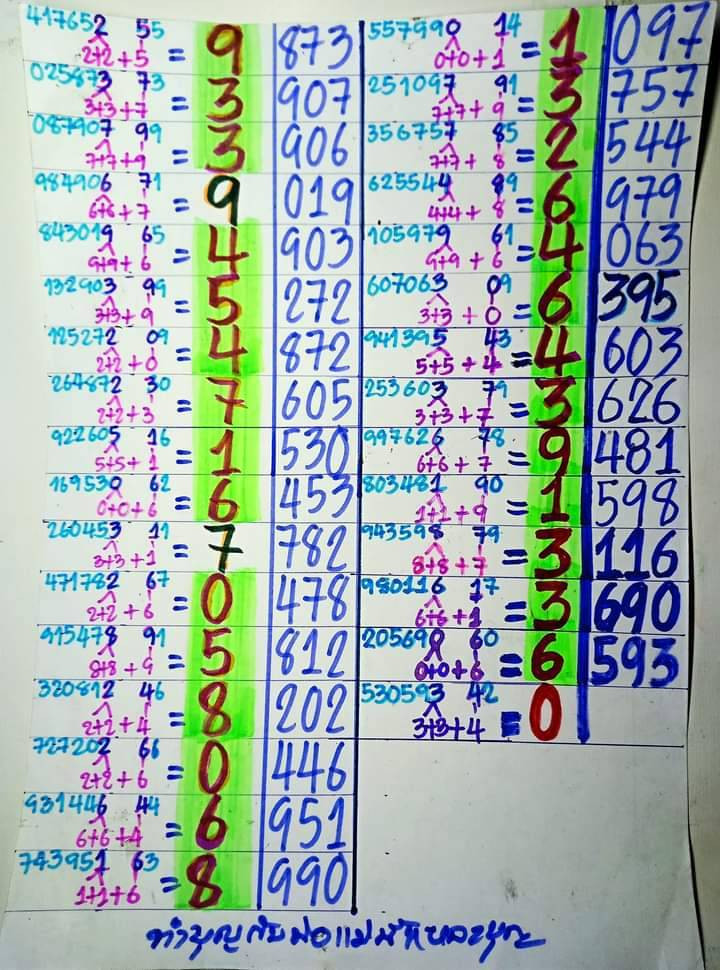 417652 55
2+2+5 = 9 873
025873 73
3+3+7 = 3 907
087907 99
7+7+9 = 3 906
984906 71
6+6+7 = 9 019
843019 65
9+9+6 = 4 903
132903 99
3+3+9 = 5 272
125272 09
2+2+0 = 4 872
264872 30
2+2+3 = 7 605
922605 16
5+5+1 = 1 530
169530 62
0+0+6 = 6 453
260453 11
3+3+1 = 7 782
471782 67
2+2+6 = 0 478
915478 91
8+8+9 = 5 812
320812 46
2+2+4 = 8 202
727202 66
2+2+6 = 0 446
931446 44
6+6+4 = 6 951
743951 63
1+1+6 = 8 990
557990 14
0+0+1 = 1 097
251097 91
7+7+9 = 3 757
356757 85
7+7+8 = 2 544
625544 89
4+4+8 = 6 979
105979 61
9+9+6 = 4 063
607063 09
3+3+0 = 6 395
941395 43
5+5+4 = 4 603
253603 79
3+3+7 = 3 626
997626 78
6+6+7 = 9 481
803481 90
1+1+9 = 1 598
943598 79
8+8+7 = 3 116
980116 17
6+6+1 = 3 690
205690 60
0+0+6 = 6 593
530593 42
3+3+4 = 0
ทำบุญกับพ่อแม่